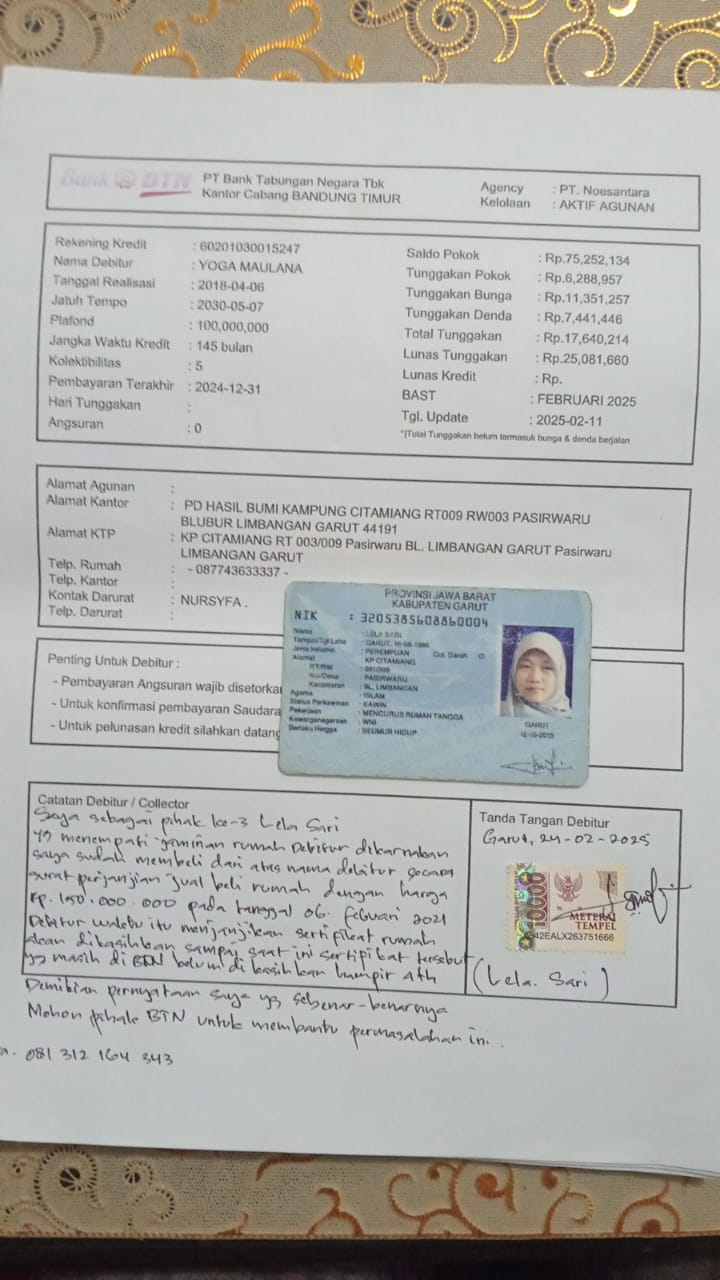 Bank BTN
PT Bank Tabungan Negara Tbk
Kantor Cabang BANDUNG TIMUR
Agency : PT. Noesantara
Kelolaan : AKTIF AGUNAN
Rekening Kredit : 60201030015247
Nama Debitur : YOGA MAULANA
Tanggal Realisasi : 2018-04-06
Jatuh Tempo : 2030-05-07
Plafond : 100,000,000
Jangka Waktu Kredit : 145 bulan
Kolektibilitas : 5
Pembayaran Terakhir : 2024-12-31
Hari Tunggakan :
Angsuran : 0
Saldo Pokok : Rp.75,252,134
Tunggakan Pokok : Rp.6,288,957
Tunggakan Bunga : Rp.11,351,257
Tunggakan Denda : Rp.7,441,446
Total Tunggakan : Rp.17,640,214
Lunas Tunggakan : Rp.25,081,660
Lunas Kredit : Rp.
BAST : FEBRUARI 2025
Tgl. Update : 2025-02-11
*)Total Tunggakan belum termasuk bunga & denda berjalan
Alamat Agunan :
Alamat Kantor : PD HASIL BUMI KAMPUNG CITAMIANG RT009 RW003 PASIRWARU
BLUBUR LIMBANGAN GARUT 44191
Alamat KTP : KP CITAMIANG RT 003/009 Pasirwaru BL. LIMBANGAN GARUT Pasirwaru
LIMBANGAN GARUT
Telp. Rumah : - 087743633337 -
Telp. Kantor :
Kontak Darurat : NURSYFA .
Telp. Darurat :
PROVINSI JAWA BARAT
KABUPATEN GARUT
NIK : 3205385608860004
Nama : LELA SARI
Tempat/Tgl Lahir : GARUT, 16-08-1986
Jenis kelamin : PEREMPUAN Gol. Darah : O
Alamat : KP CITAMIANG
RT/RW
Kel/Desa : PASIRWARU
Kecamatan : BL. LIMBANGAN
Agama : ISLAM
Status Perkawinan : KAWIN
Pekerjaan : MENGURUS RUMAH TANGGA
Kewarganegaraan : WNI
Berlaku Hingga : SEUMUR HIDUP
GARUT
Penting Untuk Debitur :
- Pembayaran Angsuran wajib disetorka
- Untuk konfirmasi pembayaran Saudara
- Untuk pelunasan kredit silahkan datang
Catatan Debitur / Collector
Saya sebagai pihak ke-3 Lela Sari
yg menempati jaminan rumah Debitur dikarnakan
saya sudah membeli dari atas nama debitur secara
surat perjanjian jual beli rumah dengan harga
Rp. 150.000.000 pada tanggal 06. Februari 2021
Debitur waktu itu menjanjikan sertifikat rumah
akan dikasihkan sampai saat ini sertipikat tersebut
yg masih di BTN belum di kasihkan hampir 4th
Demikian pernyataan saya yg sebenar-benarnya
Mohon pihak BTN untuk membantu permasalahan ini.
081 312 164 343
Tanda Tangan Debitur
Garut, 24-02-2025
10000
METERAI
TEMPEL
642EALX263751666
(Lela. Sari)